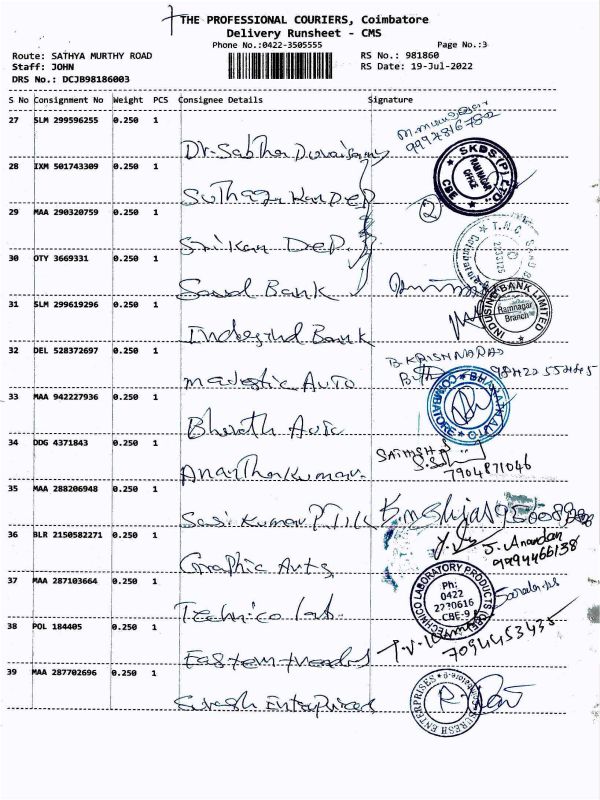 THE PROFESSIONAL COURIERS, Coimbatore
Delivery Runsheet - CMS
Phone No.:0422-3505555 Page No.:3
Route: SATHYA MURTHY ROAD RS No.: 981860
Staff: JOHN RS Date: 19-Jul-2022
DRS No.: DCJB98186003
S No Consignment No Weight PCS Consignee Details Signature
27 SLM 299596255 0.250 1
9997816782
Dr. Sabtha Duraisamy
SKDS (P) LTD.
RAM NAGAR OFFICE
CBE
28 IXM 501743309 0.250 1
DEP
2
29 MAA 290320759 0.250 1
Srikan DEP.
T.N.C
30 OTY 3669331 0.250 1
Bank
31 SLM 299619296 0.250 1
INDUSIND BANK LIMITED
Ramnagar
Branch
Indusind Bank
32 DEL 528372697 0.250 1
B KRISHNARAO
Majestic Auto
33 MAA 942227936 0.250 1
BHARATH AUTO
COIMBATORE
Bharath Auto
34 DDG 4371843 0.250 1
SATHISH
7904871046
Ananthakumar.
35 MAA 288206948 0.250 1
Sasi Kumar P.
36 BLR 2150582271 0.250 1
J. Anandan
9994466138
Graphic Arts
37 MAA 287103664 0.250 1
TECHNICO LABORATORY PRODUCTS
Ph:
0422
2230616
CBE-9
Technico lab.
38 POL 184405 0.250 1
7094453435
Eastern
39 MAA 287702696 0.250 1
SURESH ENTERPRISES
Suresh Enterprises